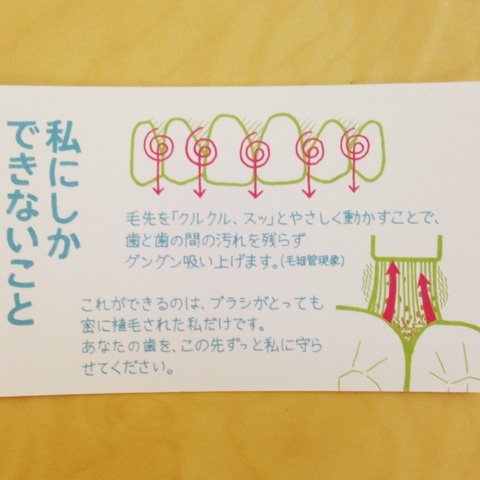 私にしか
できないこと
毛先を「クルクル、スッ」とやさしく動かすことで、
歯と歯の間の汚れを残らず
グングン吸い上げます。(毛細管現象)
これができるのは、ブラシがとっても
密に植毛された私だけです。
あなたの歯を、この先ずっと私に守ら
せてください。